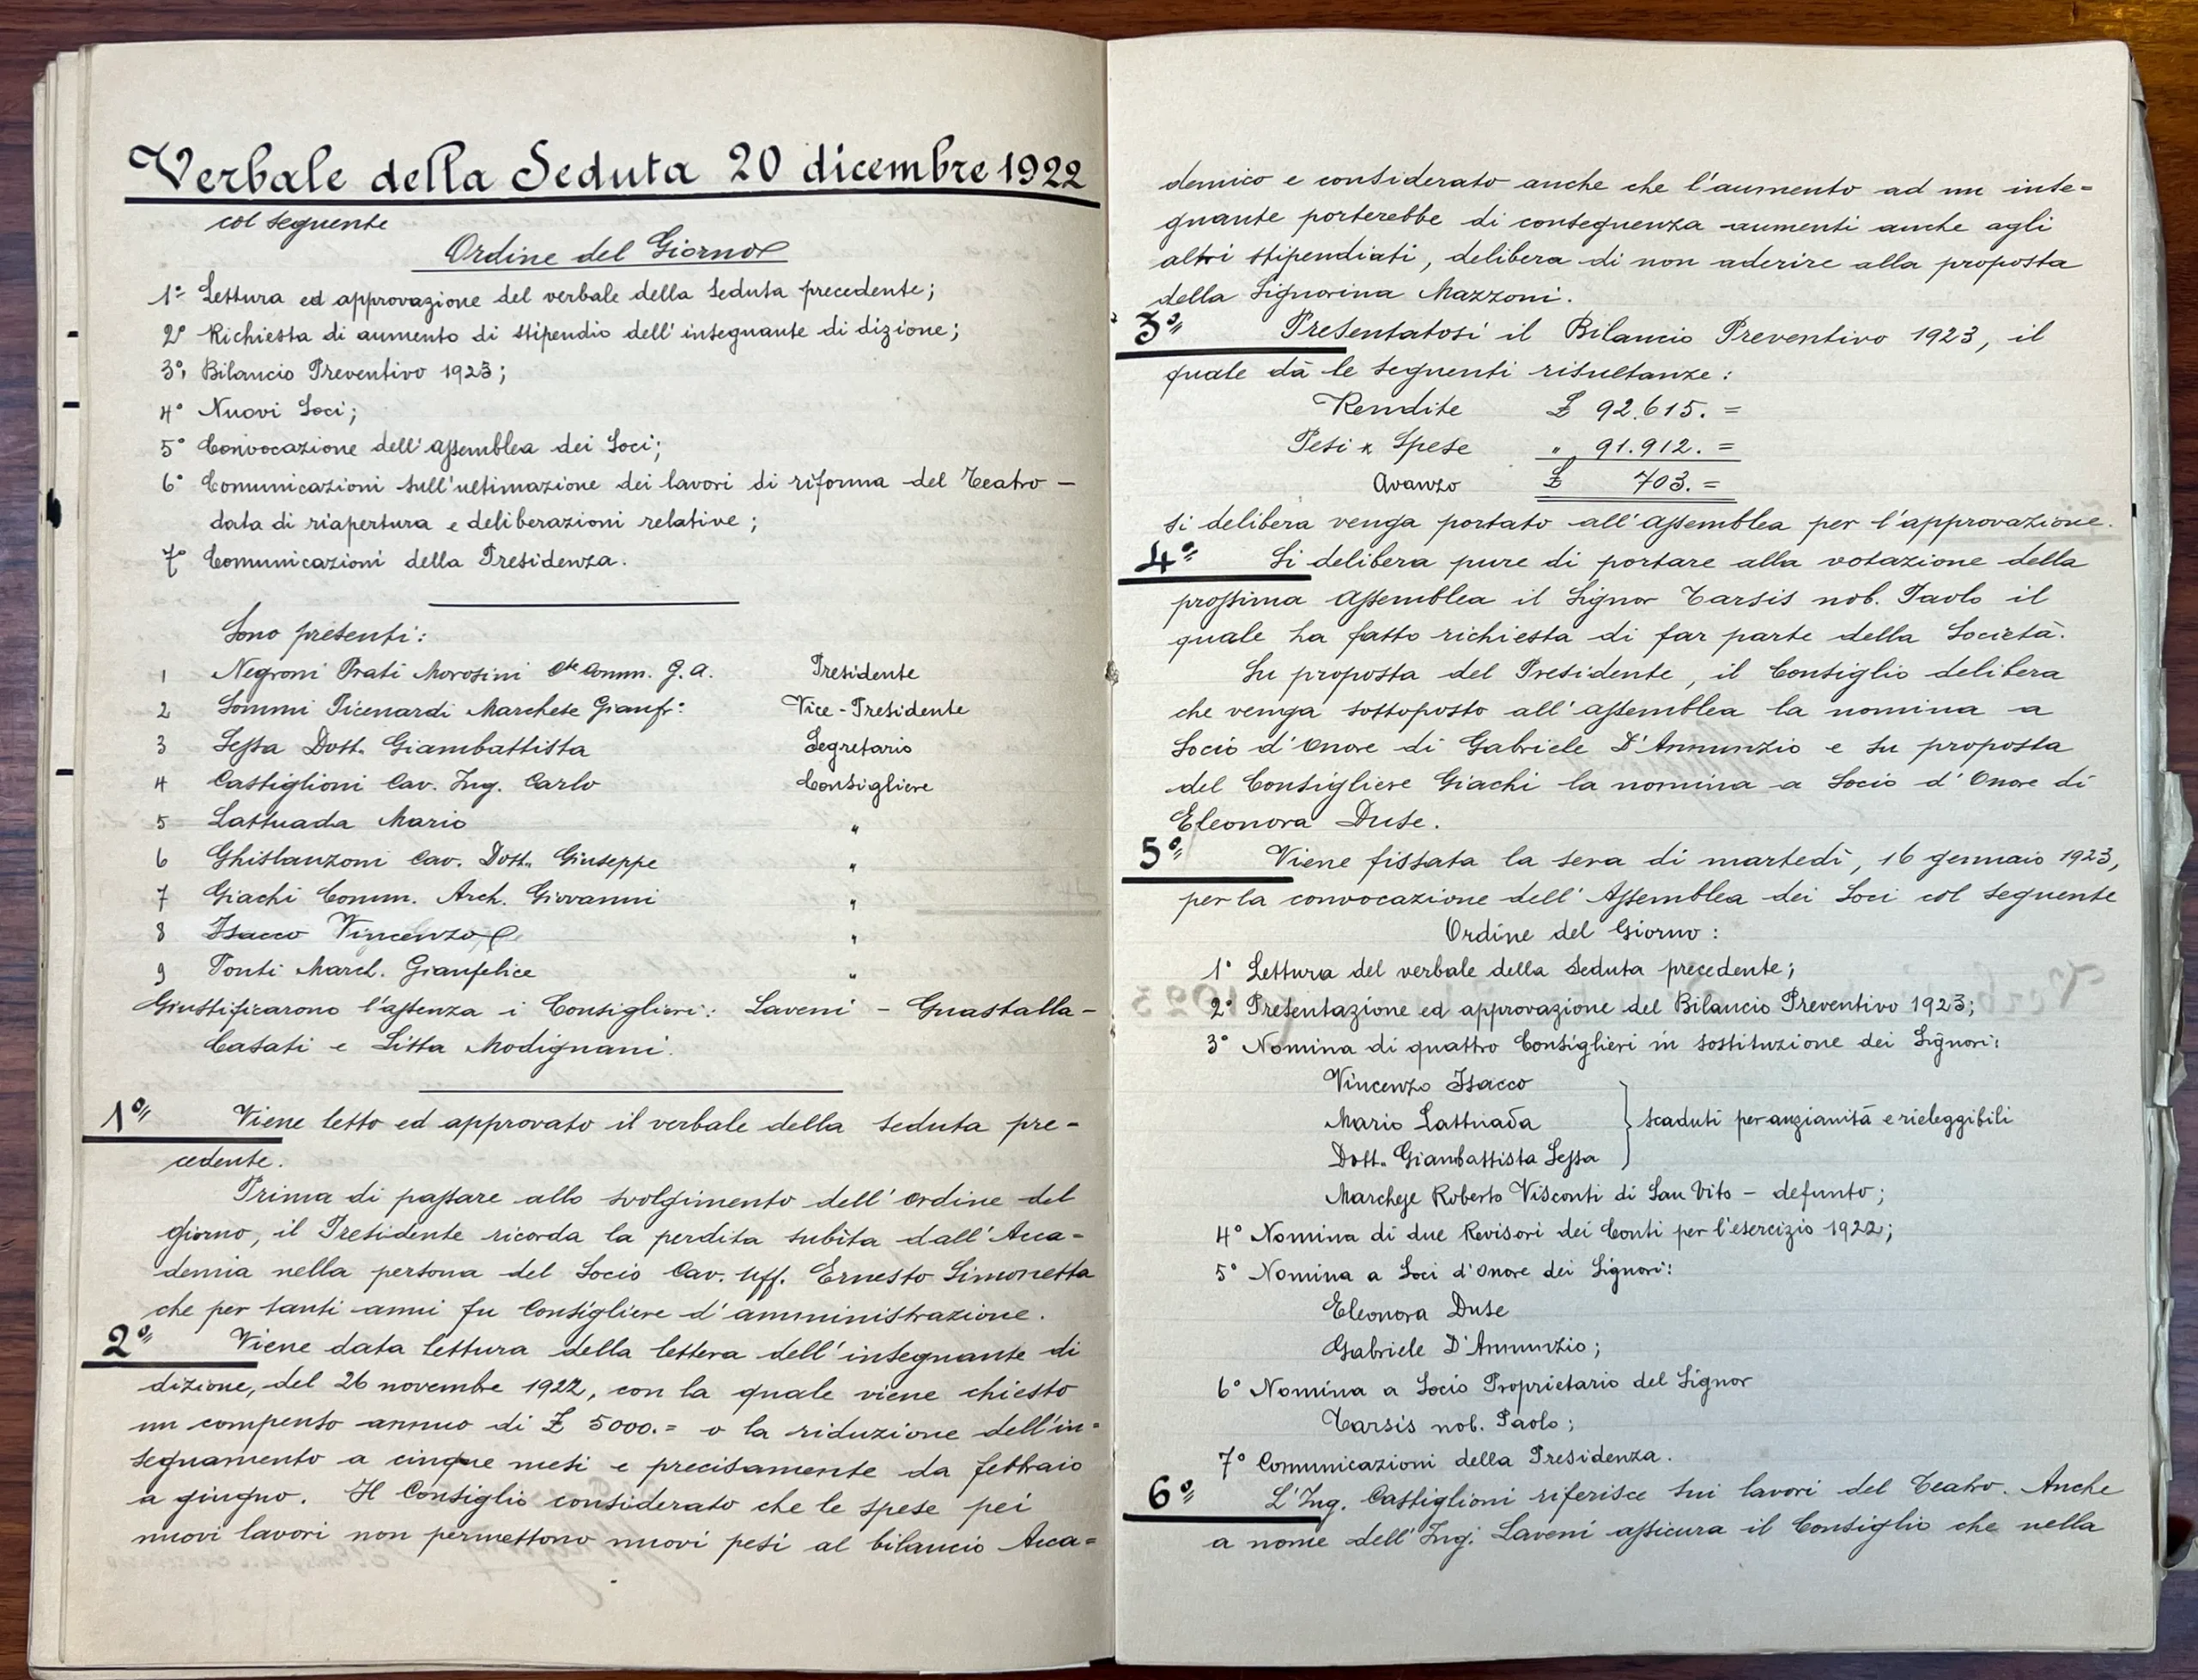 Verbale della Seduta 20 dicembre 1922
col seguente
Ordine del Giorno
1° Lettura ed approvazione del verbale della seduta precedente;
2° Richiesta di aumento di stipendio dell'insegnante di dizione;
3° Bilancio Preventivo 1923;
4° Nuovi Soci;
5° Convocazione dell'Assemblea dei Soci;
6° Comunicazioni sull'ultimazione dei lavori di riforma del Teatro –
data di riapertura e deliberazioni relative;
7° Comunicazioni della Presidenza.
Sono presenti:
1 Negroni Prati Morosini Cte Comm. G. A. Presidente
2 Sommi Picenardi Marchese Gianfr: Vice-Presidente
3 Sessa Dott. Giambattista Segretario
4 Castiglioni Cav. Ing. Carlo Consigliere
5 Lattuada Mario "
6 Ghislanzoni Cav. Dott. Giuseppe "
7 Giachi Comm. Arch. Giovanni "
8 Isacco Vincenzo "
9 Ponti March. Gianfelice "
Giustificarono l'assenza i Consiglieri: Laveni – Guastalla –
Casati e Litta Modignani.
1° Viene letto ed approvato il verbale della seduta pre-
cedente.
Prima di passare allo svolgimento dell'ordine del
giorno, il Presidente ricorda la perdita subita dall'Acca-
demia nella persona del Socio Cav. Uff. Ernesto Simonetta
che per tanti anni fu Consigliere d'amministrazione.
2° Viene data lettura della lettera dell'insegnante di
dizione, del 26 novembre 1922, con la quale viene chiesto
un compenso annuo di £ 5000.= o la riduzione dell'in=
segnamento a cinque mesi e precisamente da febbraio
a giugno. Il Consiglio considerato che le spese pei
nuovi lavori non permettono nuovi pesi al bilancio Acca=
demico e considerato anche che l'aumento ad un inse=
gnante porterebbe di conseguenza aumenti anche agli
altri stipendiati, delibera di non aderire alla proposta
della Signorina Mazzoni.
3° Presentatosi il Bilancio Preventivo 1923, il
quale dà le seguenti risultanze:
Rendite £ 92.615.=
Pesi e Spese " 91.912.=
Avanzo £ 703.=
si delibera venga portato all'Assemblea per l'approvazione.
4° Si delibera pure di portare alla votazione della
prossima Assemblea il Signor Tarsis nob. Paolo il
quale ha fatto richiesta di far parte della Società.
Su proposta del Presidente, il Consiglio delibera
che venga sottoposto all'assemblea la nomina a
Socio d'Onore di Gabriele D'Annunzio e su proposta
del Consigliere Giachi la nomina a Socio d'Onore di
Eleonora Duse.
5° Viene fissata la sera di martedì, 16 gennaio 1923,
per la convocazione dell'Assemblea dei Soci col seguente
Ordine del Giorno:
1° Lettura del verbale della seduta precedente;
2° Presentazione ed approvazione del Bilancio Preventivo 1923;
3° Nomina di quattro Consiglieri in sostituzione dei Signori:
Vincenzo Isacco
Mario Lattuada } scaduti per anzianità e rieleggibili
Dott. Giambattista Sessa
Marchese Roberto Visconti di San Vito – defunto;
4° Nomina di due Revisori dei Conti per l'esercizio 1922;
5° Nomina a Soci d'Onore dei Signori:
Eleonora Duse
Gabriele D'Annunzio;
6° Nomina a Socio Proprietario del Signor
Tarsis nob. Paolo;
7° Comunicazioni della Presidenza.
6° L'Ing. Castiglioni riferisce sui lavori del Teatro. Anche
a nome dell'Ing. Laveni assicura il Consiglio che nella